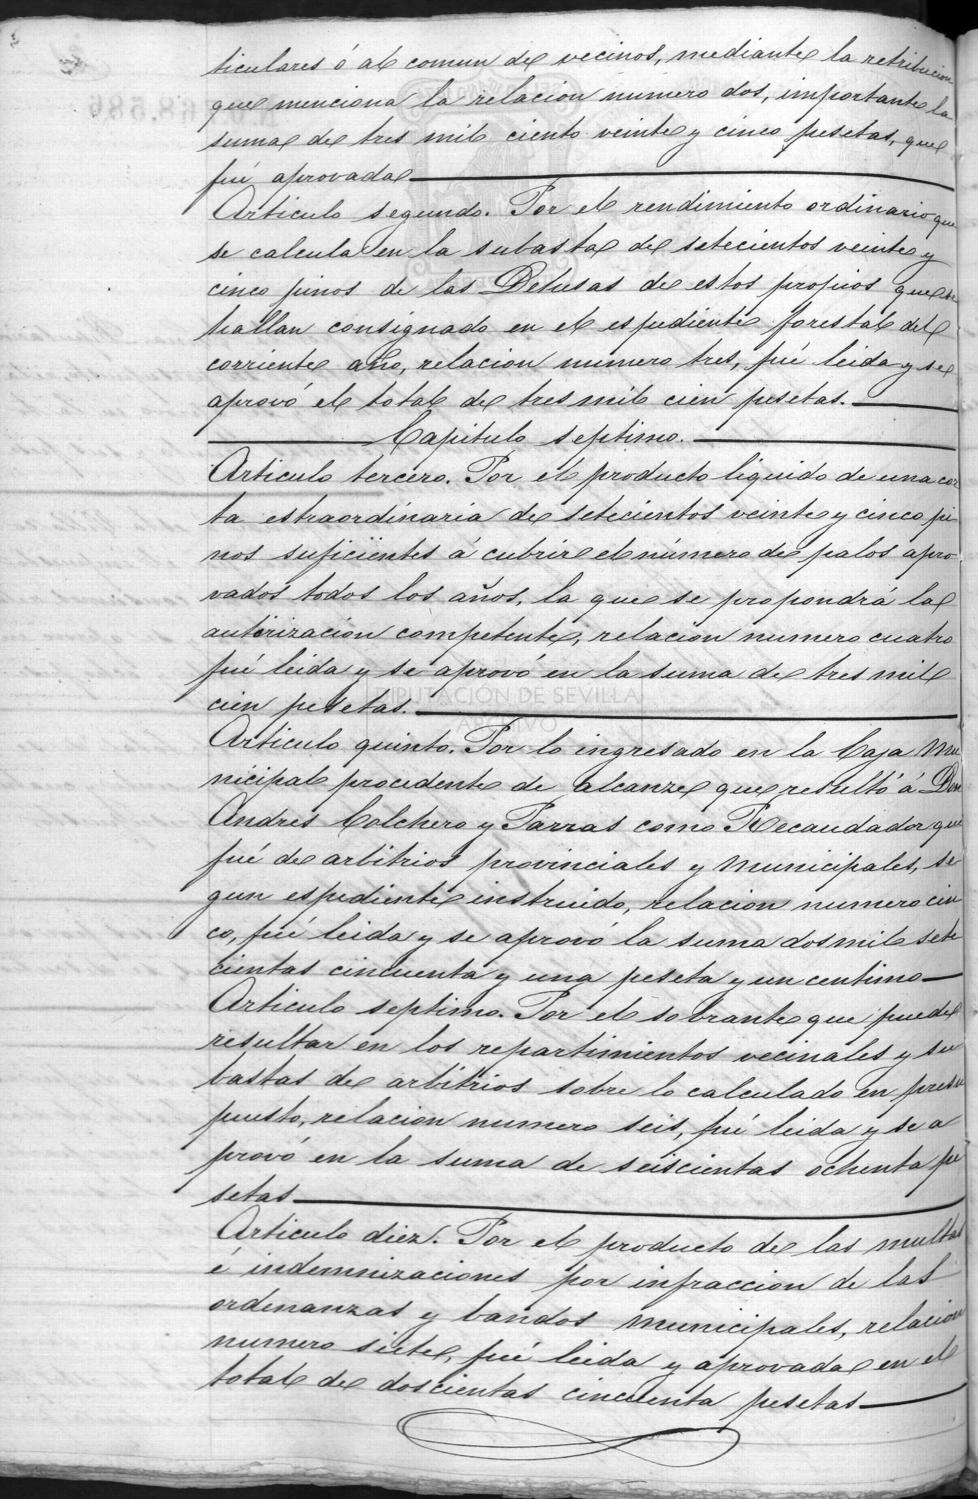 ticulares ó al comun de vecinos, mediante la retribucion
que menciona la relacion numero dos, importante la
suma de tres mil ciento veinte y cinco pesetas, que
fué aprovada
Articulo segundo. Por el rendimiento ordinario que
se calcula en la subasta de setecientos veinte y
cinco pinos de las Dehesas de estos propios que se
hallan consignado en el espediente forestal del
corriente año, relacion numero tres, fué leida y se
aprovó el total de tres mil cien pesetas.
Capitulo septimo.
Articulo tercero. Por el producto liquido de una cor
ta estraordinaria de setecientos veinte y cinco pi
nos suficientes á cubrir el número de palos apro
vados todos los años, la que se propondrá la
autorizacion competente, relacion numero cuatro
fué leida y se aprovó en la suma de tres mil
cien pesetas.
DIPUTACIÓN DE SEVILLA
ARCHIVO
Articulo quinto. Por lo ingresado en la Caja Mu
nicipal procedente de alcanze que resultó á Don
Andres Colchero y Parras como Recaudador que
fué de arbitrios provinciales y Municipales, se
gun espediente instruido, relacion numero cin
co, fué leida y se aprovó la suma dos mil sete
cientas cincuenta y una peseta y un centimo
Articulo septimo. Por el sobrante que puede
resultar en los repartimientos vecinales y su
bastas de arbitrios sobre lo calculado en presu
puesto, relacion numero seis, fué leida y se a
provó en la suma de seiscientas ochenta pe
setas
Articulo diez. Por el producto de las multas
é indemnizaciones por infraccion de las
ordenanzas y bandos municipales, relacion
numero siete, fué leida y aprovada en el
total de doscientas cincuenta pesetas